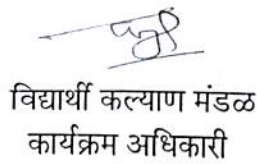 विद्यार्थी कल्याण मंडळ
कार्यक्रम अधिकारी